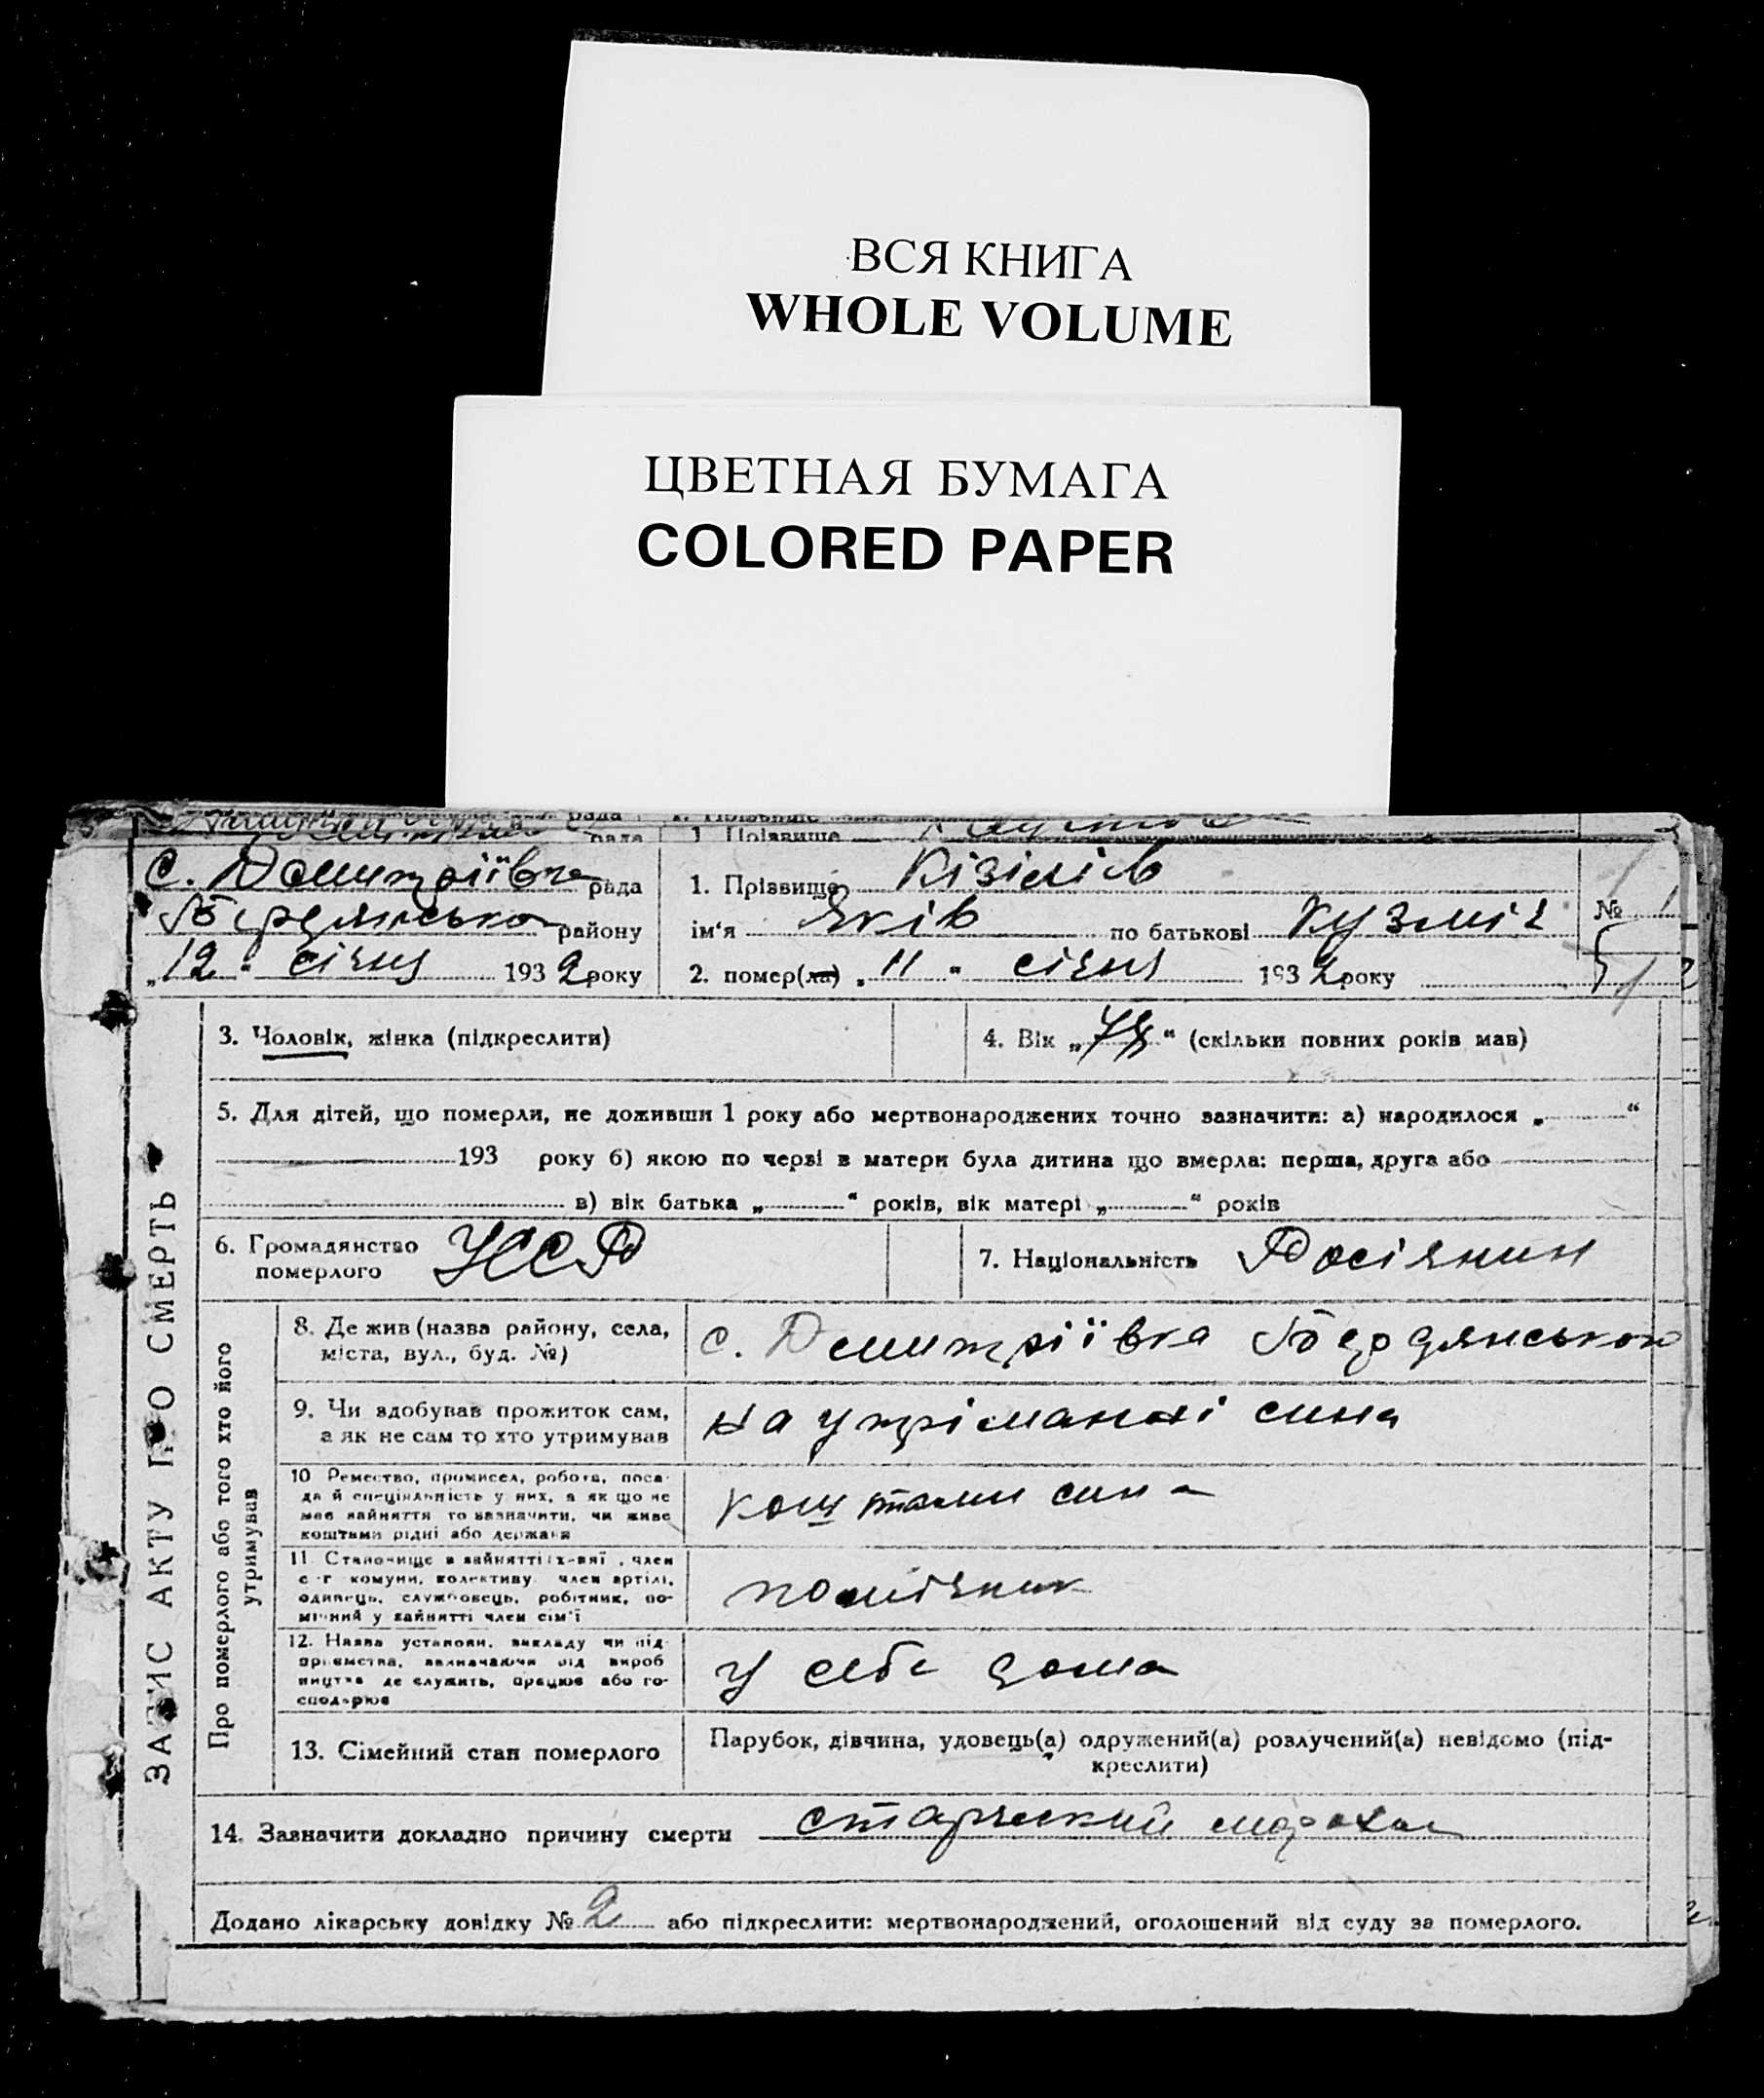 ВСЯ КНИГА
WHOLE VOLUME
ЦВЕТНАЯ БУМАГА
COLORED PAPER
рада
рада 1. Прізвище
с. Дмитріївка рада
Бердянсько району
„12“ січня 1932 року
1. Прізвище Кізілів
ім‘я Яків по батькові Кузміч
2. помер(ла) „11“ січня 1932 року
№ 1
ЗАПИС АКТУ ПРО СМЕРТЬ
3. Чоловік, жінка (підкреслити)
4. Вік „ “ (скільки повних років мав)
5. Для дітей, що померли, не доживши 1 року або мертвонароджених точно зазначити: а) народилося „ “
193 року б) якою по черзі в матери була дитина що вмерла: перша, друга або
в) вік батька „ “ років, вік матері „ “ років
6. Громадянство
померлого УССР
7. Національність Росіянин
Про померлого або того хто його
утримував
8. Де жив (назва району, села,
міста, вул., буд. №)
с. Дмитріївка Бердянського
9. Чи здобував прожиток сам,
а як не сам то хто утримував
на утріманні сина
10 Ремество, промисел, робота, поса-
да й спеціяльність у них, а як що не
мав зайняття то зазначити, чи живе
коштами рідні або держави
коштами сина
11. Становище в зайнятті: х-вяї, член
с.-г комуни, колективу, член артілі,
одинець, службовець, робітник, по-
мічний у зайнятті член сім‘ї
помічник
12. Назва установи, викладу чи під-
приємства, зазначаючи від вироб
ництва де служить, працює або го-
сподарює
у себе дома
13. Сімейний стан померлого
Парубок, дівчина, удовець(а) одружений(а) розлучений(а) невідомо (під-
креслити)
14. Зазначити докладно причину смерти старческий
Додано лікарську довідку № 2 або підкреслити: мертвонароджений, оголошений від суду за померлого.